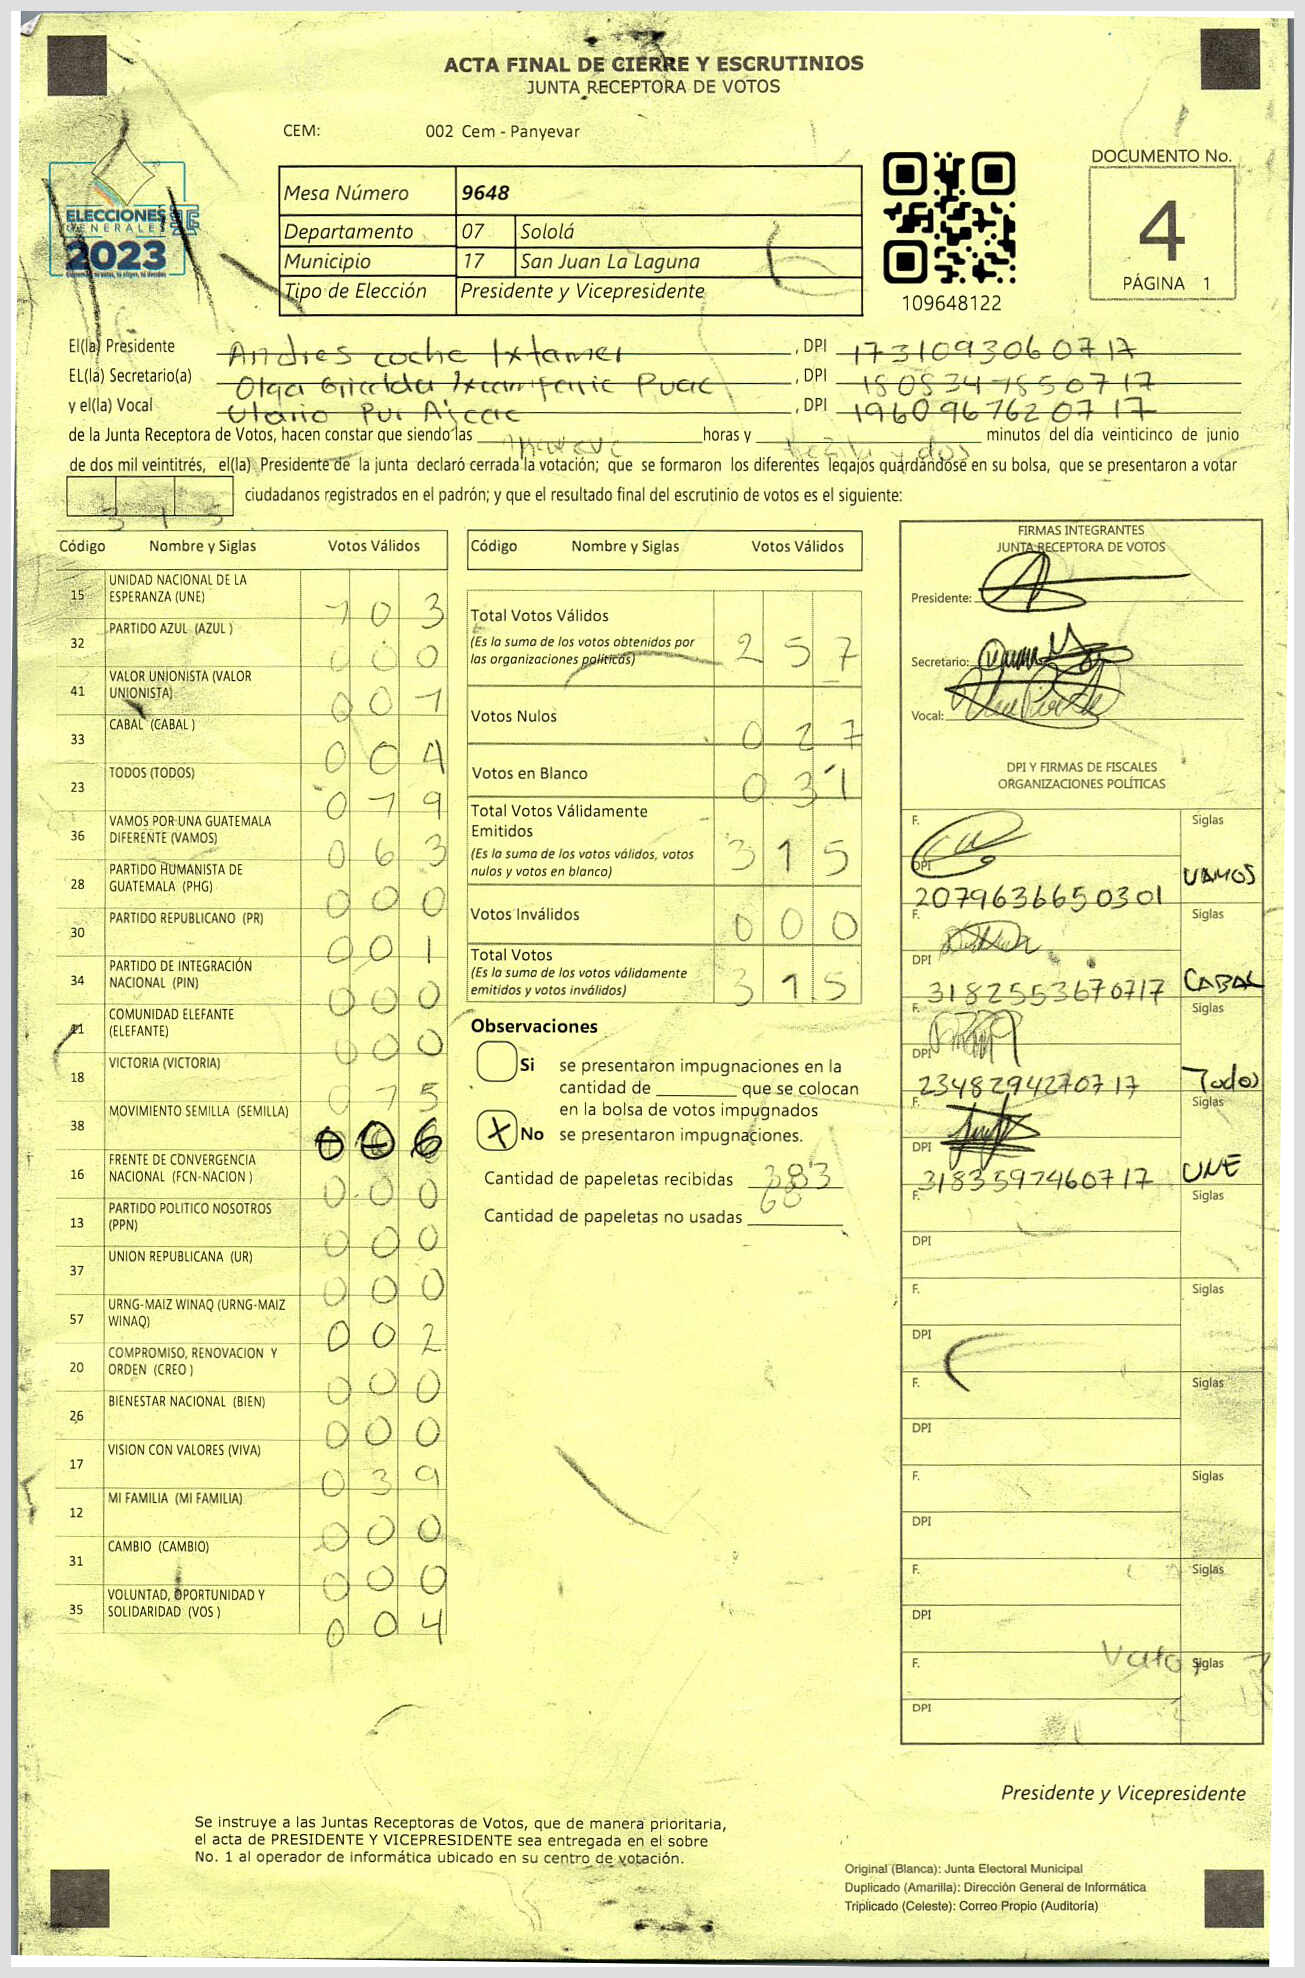 ACTA FINAL DE CIERRE Y ESCRUTINIOS
JUNTA RECEPTORA DE VOTOS
CEM: 002 Cem - Panyevar
DOCUMENTO No.
4
PÁGINA 1
ELECCIONES
GENERALES
2023
Mesa Número 9648
Departamento 07 Sololá
Municipio 17 San Juan La Laguna
Tipo de Elección Presidente y Vicepresidente
109648122
El(la) Presidente Andres coche Ixtamer , DPI 1731093060717
EL(la) Secretario(a) Olga Puac , DPI 1808347850717
y el(la) Vocal Pur , DPI 1960967620717
de la Junta Receptora de Votos, hacen constar que siendo las horas y y dos minutos del día veinticinco de junio
de dos mil veintitrés, el(la) Presidente de la junta declaró cerrada la votación; que se formaron los diferentes legajos quardándose en su bolsa, que se presentaron a votar
315 ciudadanos registrados en el padrón; y que el resultado final del escrutinio de votos es el siguiente:
Código Nombre y Siglas Votos Válidos
15 UNIDAD NACIONAL DE LA ESPERANZA (UNE) 103
32 PARTIDO AZUL (AZUL ) 000
41 VALOR UNIONISTA (VALOR UNIONISTA) 001
33 CABAL (CABAL ) 004
23 TODOS (TODOS) 019
36 VAMOS POR UNA GUATEMALA DIFERENTE (VAMOS) 063
28 PARTIDO HUMANISTA DE GUATEMALA (PHG) 000
30 PARTIDO REPUBLICANO (PR) 001
34 PARTIDO DE INTEGRACIÓN NACIONAL (PIN) 000
11 COMUNIDAD ELEFANTE (ELEFANTE) 000
18 VICTORIA (VICTORIA) 015
38 MOVIMIENTO SEMILLA (SEMILLA) 006
16 FRENTE DE CONVERGENCIA NACIONAL (FCN-NACION ) 000
13 PARTIDO POLITICO NOSOTROS (PPN) 000
37 UNION REPUBLICANA (UR) 000
57 URNG-MAIZ WINAQ (URNG-MAIZ WINAQ) 002
20 COMPROMISO, RENOVACION Y ORDEN (CREO ) 000
26 BIENESTAR NACIONAL (BIEN) 000
17 VISION CON VALORES (VIVA) 039
12 MI FAMILIA (MI FAMILIA) 000
31 CAMBIO (CAMBIO) 000
35 VOLUNTAD, OPORTUNIDAD Y SOLIDARIDAD (VOS ) 004
Código Nombre y Siglas Votos Válidos
Total Votos Válidos 257
(Es la suma de los votos obtenidos por
las organizaciones políticas)
Votos Nulos 027
Votos en Blanco 031
Total Votos Válidamente
Emitidos 315
(Es la suma de los votos válidos, votos
nulos y votos en blanco)
Votos Inválidos 000
Total Votos 315
(Es la suma de los votos válidamente
emitidos y votos inválidos)
Observaciones
Si se presentaron impugnaciones en la
cantidad de ________ que se colocan
en la bolsa de votos impugnados
X No se presentaron impugnaciones.
Cantidad de papeletas recibidas 383
Cantidad de papeletas no usadas 68
FIRMAS INTEGRANTES
JUNTA RECEPTORA DE VOTOS
Presidente:
Secretario:
Vocal:
DPI Y FIRMAS DE FISCALES
ORGANIZACIONES POLÍTICAS
F. Siglas
DPI 2079636650301 VAMOS
F. Siglas
DPI 3182553670717 CABAL
F. Siglas
DPI 2348294270717 Todos
F. Siglas
DPI 3183597460717 UNE
F. Siglas
DPI
F. Siglas
DPI
F. Siglas
DPI
F. Siglas
DPI
F. Siglas
DPI
F. Siglas
DPI
Presidente y Vicepresidente
Se instruye a las Juntas Receptoras de Votos, que de manera prioritaria,
el acta de PRESIDENTE Y VICEPRESIDENTE sea entregada en el sobre
No. 1 al operador de informática ubicado en su centro de votación.
Original (Blanca): Junta Electoral Municipal
Duplicado (Amarilla): Dirección General de Informática
Triplicado (Celeste): Correo Propio (Auditoría)